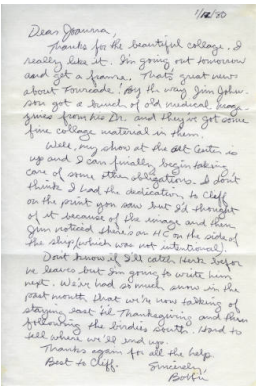 1/12/80
Dear Joanna,
Thanks for the beautiful collage. I
really like it. I'm going out tomorrow
and get a frame. That's great news
about Fourcade! By the way Jim John-
son got a bunch of old medical maga-
zines from his Dr. and they've got some
fine collage material in them.
Well, my show at the Art Center is
up and I can finally begin taking
care of some other obligations. I don't
think I had the dedication to Cleff
on the print you saw but I'd thought
of it because of the image and then
Jim noticed there's an HC on the side of
the ship (which was not intentional).
Don't know if I'll catch Herk before
we leave but I'm going to write him
next. We've had so much snow in the
past month that we're now talking of
staying east 'til Thanksgiving and then
following the birdies south. Hard to
tell where we'll end up.
Thanks again for all the help.
Best to Cleff. Sincerely,